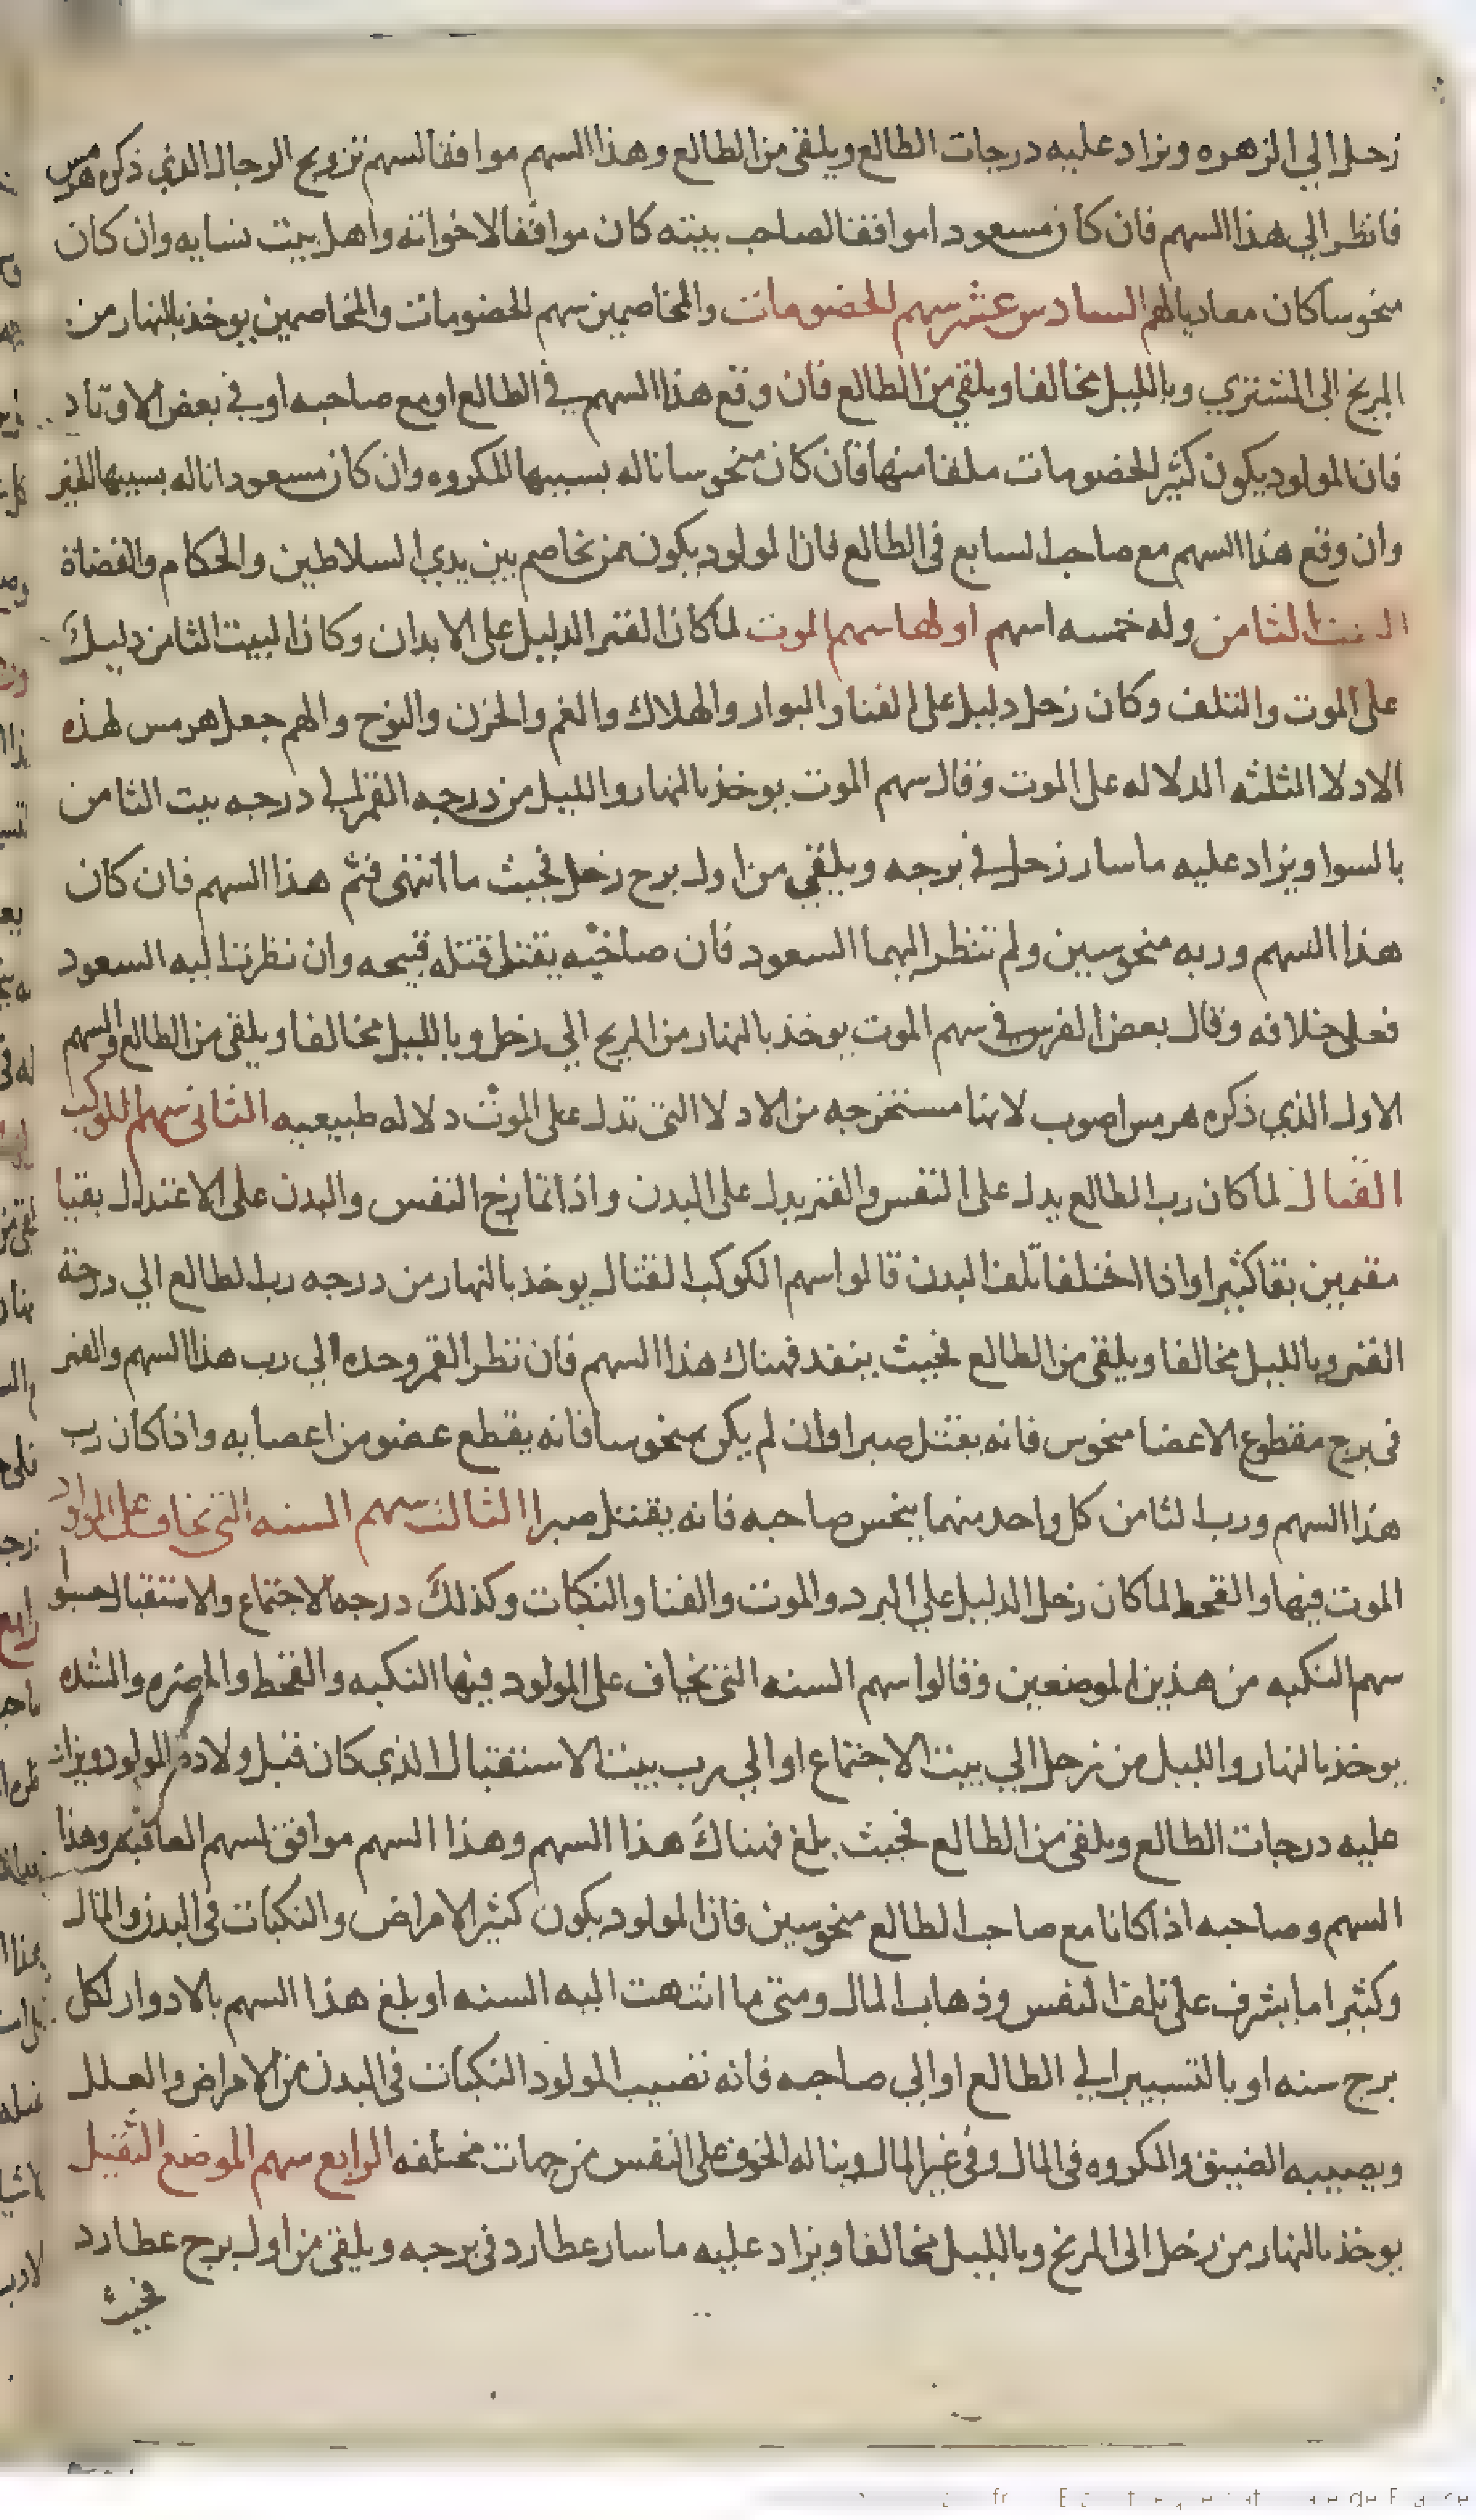 زحل الي الزهره ويزاد عليه درجات الطالع ويلقي من الطالع وهذا السهم موافقا لسهم تزويج الرجال الذي ذكره هرمس
فانظر الي هذا السهم فان كان مسعودا موافقا لصاحب بيته كان موافقا لاخوانه واهل بيت نسايه وان كان
منحوسا كان معاديا لهم السادس عشر سهم الخصومات والمخاصمين سهم الخصومات والمخاصمين يوخذ بالنهار من
المريخ الى المشتري وبالليل مخالفا ويلقي من الطالع فان وقع هذا السهم في الطالع او مع صاحبه او في بعض الاوتاد
فان المولود يكون كثير الخصومات ملقا منها فان كان منحوسا ناله بسببها المكروه وان كان مسعودا ناله بسببها الخير
وان وقع هذا السهم مع صاحب السابع في الطالع فان المولود يكون ممن يخاصم بين يدي السلاطين والحكام والقضاة
البيت الثامن وله خمسه اسهم اولها سهم الموت لما كان القمر الدليل على الابدان وكان البيت الثامن دليلا
على الموت والتلف وكان زحل دليل على الفنا والبوار والهلاك والغم والحزن والنوح والهم جعل هرمس لهذه
الادلا الثلثه الدلاله على الموت وقال سهم الموت يوخذ بالنهار والليل من درجه القمر الي درجه بيت الثامن
بالسوا ويزاد عليه ما سار زحل في برجه ويلقي من اول برج زحل فحيث ما انتهى فثم هذا السهم فان كان
هذا السهم وربه منحوسين ولم تنظر اليهما السعود فان صاحبه يقتل قتله قبيحه وان نظرت اليه السعود
فعلى خلافه وقال بعض الفرس في سهم الموت يوخذ بالنهار من المريخ الي زحل وبالليل مخالفا ويلقى من الطالع والسهم
الاول الذي ذكره هرمس اصوب لانها مستخرجه من الادلا التي تدل على الموت دلاله طبيعيه الثاني سهم الكوكب
القتال لما كان رب الطالع يدل على النفس والقمر يدل على البدن واذا تمازج النفس والبدن على الاعتدال بقيا
مقيمين بقا كثيرا واذا اختلفا تلف البدن قالوا سهم الكوكب القتال يوخذ بالنهار من درجه رب الطالع الي درجة
القمر وبالليل مخالفا ويلقى من الطالع فحيث ينفد فهناك هذا السهم فان نظر القمر وحده الي رب هذا السهم والقمر
في برج مقطوع الاعضا منحوس فانه يقتل صبرا وان لم يكن منحوسا فانه يقطع عضو من اعضايه واذا كان رب
هذا السهم ورب الثامن كل واحد منهما ينحس صاحبه فانه يقتل صبرا الثالث سهم السنه التي يخاف على المولود
الموت فيها والقحط لما كان زحل الدليل علي البرد والموت والفنا والنكبات وكذلك درجه الاجتماع والاستقبال حسبوا
سهم النكبه من هذين الموضعين وقالوا سهم السنه التي يخاف على المولود فيها النكبه والقحط والمضره والشده
يوخذ بالنهار والليل من زحل الي بيت الاجتماع او الي رب بيت الاستقبال الذي كان قبل ولادة المولود ويزاد
عليه درجات الطالع ويلقى من الطالع فحيث بلغ فهناك هذا السهم وهذا السهم موافق لسهم العاقبه وهذا
السهم وصاحبه اذا كانا مع صاحب الطالع منحوسين فان المولود يكون كثير الامراض والنكبات في البدن والمال
وكثيرا ما يشرف على تلف النفس وذهاب المال ومتى ما انتهت اليه السنه او بلغ هذا السهم بالادوار لكل
برج سنه او بالتسيير الي الطالع او الي صاحبه فانه تصيب المولود النكبات في البدن من الامراض والعلل
ويصيبه الضيق والمكروه في المال وفي غير المال ويناله الخوف على النفس من جهات مختلفه الرابع سهم الموضع الثقيل
يوخذ بالنهار من زحل الى المريخ وبالليل مخالفا ويزاد عليه ما سار عطارد في برجه ويلقي من اول برج عطارد
فحيث